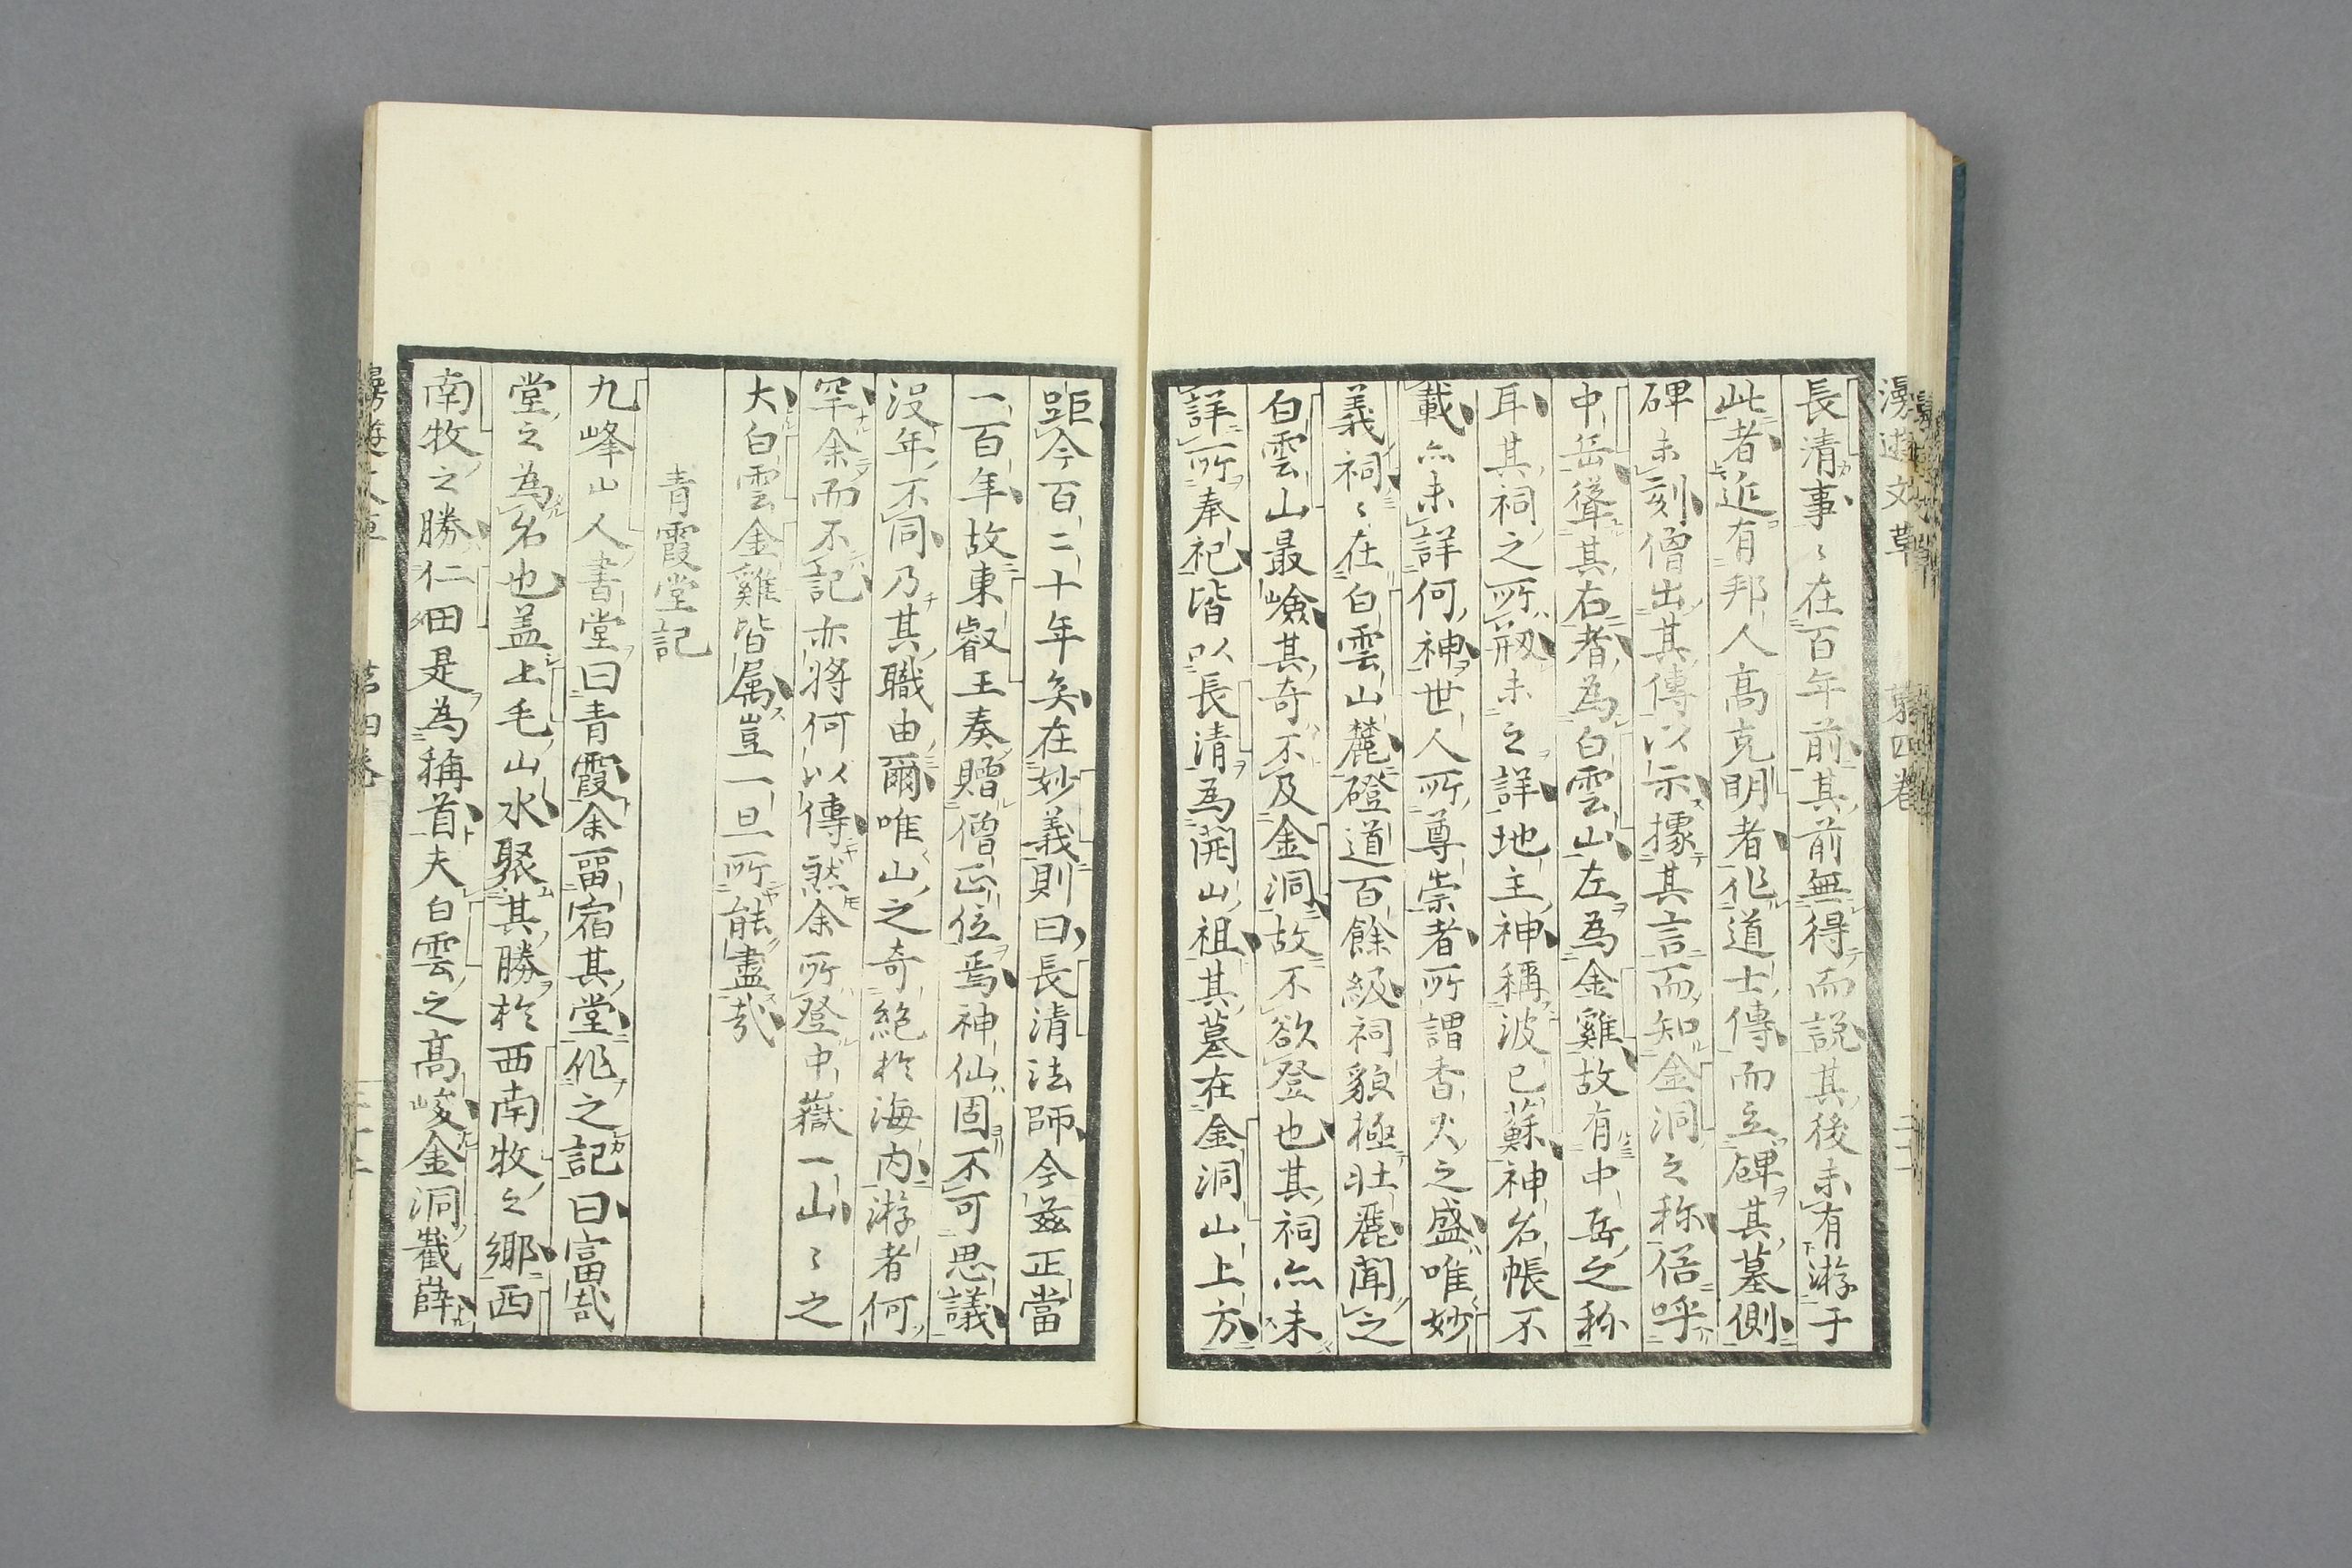 漫遊文草
第四巻
長清事〻在百年前其前無得而説其後未有游于
此者近有邦人高克明者作道士傳而立碑其墓側
碑未刻僧出其傳以示據其言而知金洞之称倍呼
中岳聳其右者為白雲山左為金雞故有中岳之称
耳其祠之所剏未之詳地主神稱波已蘇神名帳不
載亦未詳何神世人所尊崇者所謂香火之盛唯妙
義祠〻在白雲山麓磴道百餘級祠貌極壮麗聞之
白雲山最嶮其奇不及金洞故不欲登也其祠亦未
詳所奉祀皆以長清為開山祖其墓在金洞山上方
距今百二十年矣在妙義則曰長清法師今茲正當
一百年故東叡王奏贈僧正位焉神仙固不可思議
没年不同乃其職由爾唯山之奇絶於海内游者何
罕余而不記亦将何以傳然余所登中嶽一山〻之
大白雲金雞皆属豈一旦所能盡哉
青霞堂記
九峰山人書堂曰青霞余留宿其堂作之記曰富哉
堂之為名也盖上毛山水聚其勝於西南牧之郷西
南牧之勝仁田是為稱首夫白雲之高峻金洞巀嶭